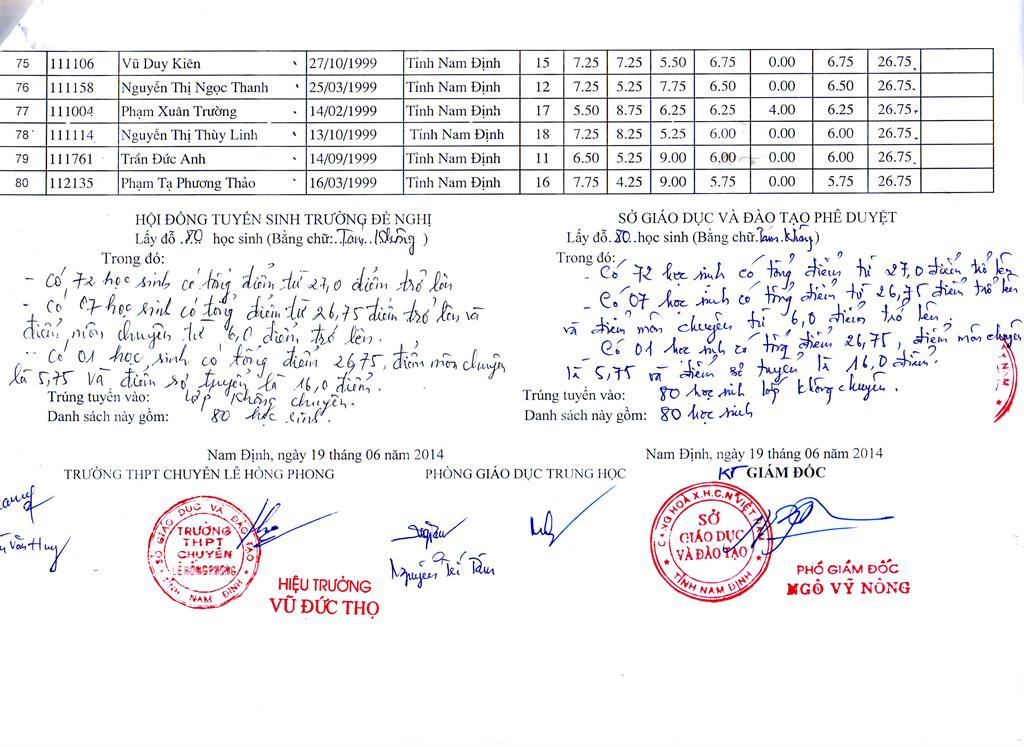 75 111106 Vũ Duy Kiên 27/10/1999 Tỉnh Nam Định 15 7.25 7.25 5.50 6.75 0.00 6.75 26.75
76 111158 Nguyễn Thị Ngọc Thanh 25/03/1999 Tỉnh Nam Định 12 7.25 5.25 7.75 6.50 0.00 6.50 26.75
77 111004 Phạm Xuân Trường 14/02/1999 Tỉnh Nam Định 17 5.50 8.75 6.25 6.25 4.00 6.25 26.75
78 111114 Nguyễn Thị Thùy Linh 13/10/1999 Tỉnh Nam Định 18 7.25 8.25 5.25 6.00 0.00 6.00 26.75
79 111761 Trần Đức Anh 14/09/1999 Tỉnh Nam Định 11 6.50 5.25 9.00 6.00 0.00 6.00 26.75
80 112135 Phạm Tạ Phương Thảo 16/03/1999 Tỉnh Nam Định 16 7.75 4.25 9.00 5.75 0.00 5.75 26.75
HỘI ĐỒNG TUYỂN SINH TRƯỜNG ĐỀ NGHỊ
Lấy đỗ .80 học sinh (Bằng chữ:.Tám..Không )
Trong đó:
- Có 72 học sinh có tổng điểm từ 27,0 điểm trở lên
- Có 07 học sinh có tổng điểm từ 26,75 điểm trở lên và
điểm môn chuyên từ 6,0 điểm trở lên.
- Có 01 học sinh có tổng điểm 26,75, điểm môn chuyên
là 5,75 và điểm sơ tuyển là 16,0 điểm.
Trúng tuyển vào: lớp không chuyên.
Danh sách này gồm: 80 học sinh.
SỞ GIÁO DỤC VÀ ĐÀO TẠO PHÊ DUYỆT
Lấy đỗ.80..học sinh (Bằng chữ.Tám.Không)
Trong đó:
- Có 72 học sinh có tổng điểm từ 27,0 điểm trở lên
- Có 07 học sinh có tổng điểm từ 26,75 điểm trở lên
và điểm môn chuyên từ 6,0 điểm trở lên.
- Có 01 học sinh có tổng điểm 26,75, điểm môn chuyên
là 5,75 và điểm sơ tuyển là 16,0 điểm.
Trúng tuyển vào: 80 học sinh lớp không chuyên.
Danh sách này gồm: 80 học sinh
Nam Định, ngày 19 tháng 06 năm 2014
TRƯỜNG THPT CHUYÊN LÊ HỒNG PHONG
PHÒNG GIÁO DỤC TRUNG HỌC
Nam Định, ngày 19 tháng 06 năm 2014
KT GIÁM ĐỐC
Văn Huy
SỞ GIÁO DỤC VÀ ĐÀO TẠO
TRƯỜNG
THPT
CHUYÊN
LÊ HỒNG PHONG
TỈNH NAM ĐỊNH
HIỆU TRƯỞNG
VŨ ĐỨC THỌ
CỘNG HOÀ X.H.C.N VIỆT NAM
SỞ
GIÁO DỤC
VÀ ĐÀO TẠO
TỈNH NAM ĐỊNH
PHÓ GIÁM ĐỐC
NGÔ VỸ NÔNG